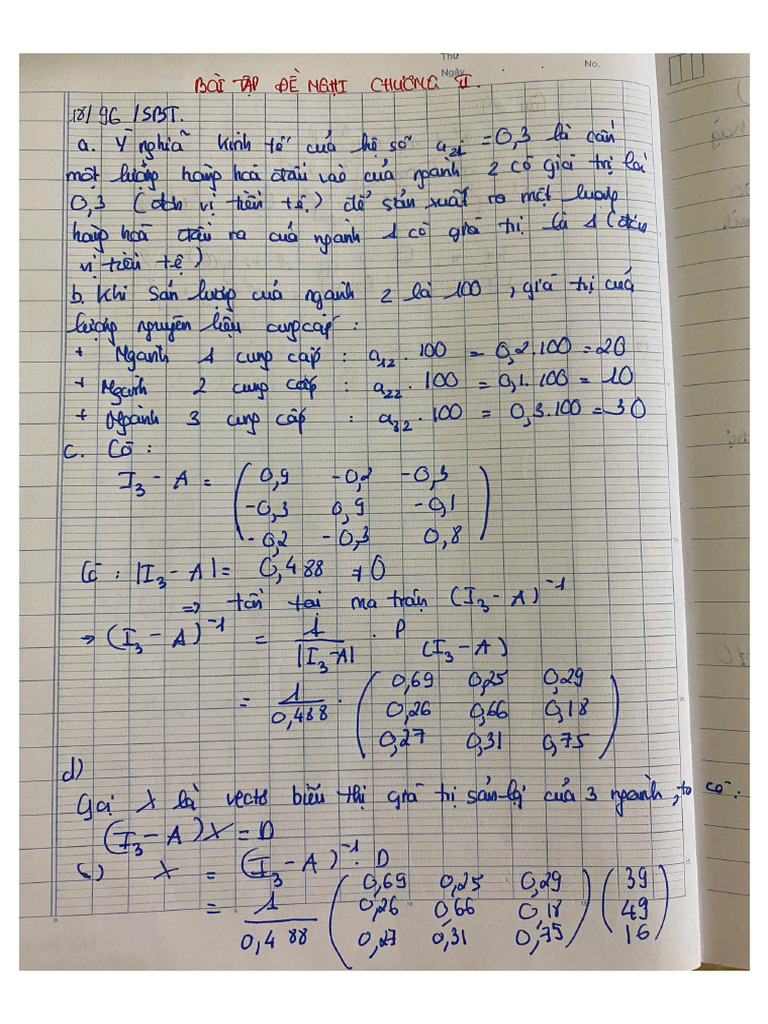 Thứ
Ngày No.
BÀI TẬP ĐỀ NGHỊ CHƯƠNG II.
18/96 /SBT.
a. Ý nghĩa kinh tế của hệ số a21 = 0,3 là cần
một lượng hàng hoá đầu vào của ngành 2 có giá trị là
0,3 (đơn vị tiền tệ) để sản xuất ra một lượng
hàng hoá đầu ra của ngành 1 có giá trị là 1 (đơn
vị tiền tệ)
b. Khi sản lượng của ngành 2 là 100, giá trị của
lượng nguyên liệu cung cấp:
+ Ngành 1 cung cấp : a12 . 100 = 0,2.100 = 20
+ Ngành 2 cung cấp : a22 . 100 = 0,1.100 = 10
+ Ngành 3 cung cấp : a32 . 100 = 0,3.100 = 30
c. Có :
I3 - A = ( 0,9 -0,2 -0,3
-0,3 0,9 -0,1
-0,2 -0,3 0,8 )
Có : |I3 - A| = 0,488 ≠ 0
=> tồn tại ma trận (I3 - A)^-1
→ (I3 - A)^-1 = 1/|I3-A| . P(I3 - A)
= 1/0,488 . ( 0,69 0,25 0,29
0,26 0,66 0,18
0,27 0,31 0,75 )
d)
Gọi X là vectơ biểu thị giá trị sản lg của 3 ngành, ta có:
(I3 - A)X = D
(=) X = (I3 - A)^-1 . D
= 1/0,488 ( 0,69 0,25 0,29
0,26 0,66 0,18
0,27 0,31 0,75 ) ( 39
49
16 )